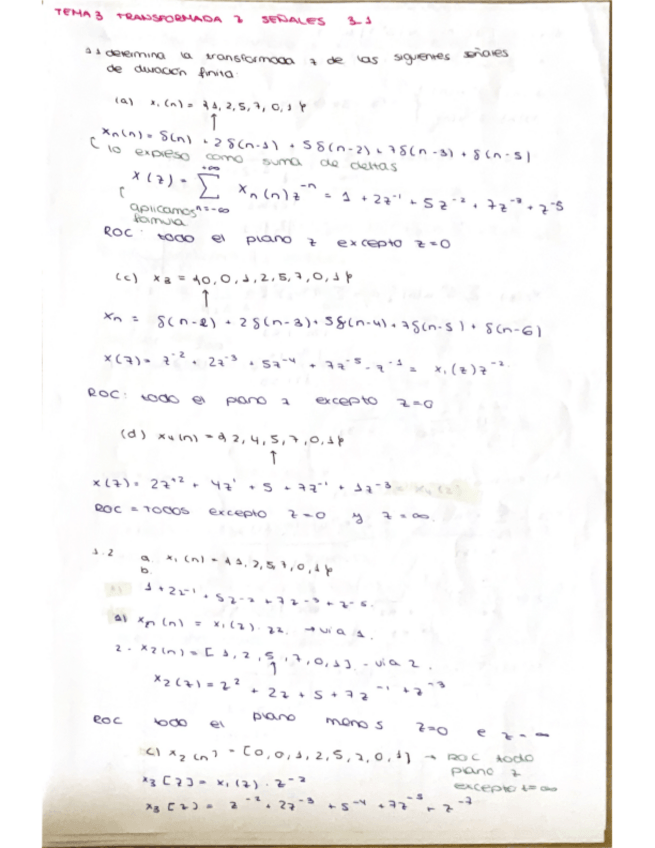 TEMA 3 TRANSFORMADA Z SEÑALES 3.1
3.1 determina la transformada z de las siguientes señales
de duración finita:
(a) x₁(n) = {1, 2, 5, 7, 0, 1}
↑
xn(n) = δ(n) + 2δ(n-1) + 5δ(n-2) + 7δ(n-3) + δ(n-5)
( lo expreso como suma de deltas
X(z) = Σ xn(n)z⁻ⁿ = 1 + 2z⁻¹ + 5z⁻² + 7z⁻³ + z⁻⁵
+∞
n=-∞
( aplicamos
fórmula
ROC: todo el plano z excepto z=0
(c) x₃ = {0, 0, 1, 2, 5, 7, 0, 1}
↑
xn = δ(n-2) + 2δ(n-3) + 5δ(n-4) + 7δ(n-5) + δ(n-6)
x(z) = z⁻² + 2z⁻³ + 5z⁻⁴ + 7z⁻⁵ - z⁻¹ = x₁(z)z⁻²
ROC: todo el pano z excepto z=0
(d) x₄(n) = {2, 4, 5, 7, 0, 1}
↑
x(z) = 2z⁺² + 4z¹ + 5 + 7z⁻¹ + 1z⁻³
ROC = TODOS excepto z=0 y z=∞.
a. x₁(n) = {1, 2, 5, 7, 0, 1}
b.
1 + 2z⁻¹ + 5z⁻² + 7z⁻³ + z⁻⁵.
a) xn(n) = x₁(z) · z². → vía 1.
2.- x₂(n) = [1, 2, 5, 7, 0, 1] - vía 2.
↑
x₂(z) = z² + 2z + 5 + 7z⁻¹ + z⁻³
ROC todo el plano menos z=0 e z=∞
c) x₂(n) = [0, 0, 1, 2, 5, 7, 0, 1] → ROC todo
plano z
excepto z=∞
x₃[z] = x₁(z) · z⁻²
x₃[z] = z⁻² + 2z⁻³ + 5⁻⁴ + 7z⁻⁵ + z⁻⁷